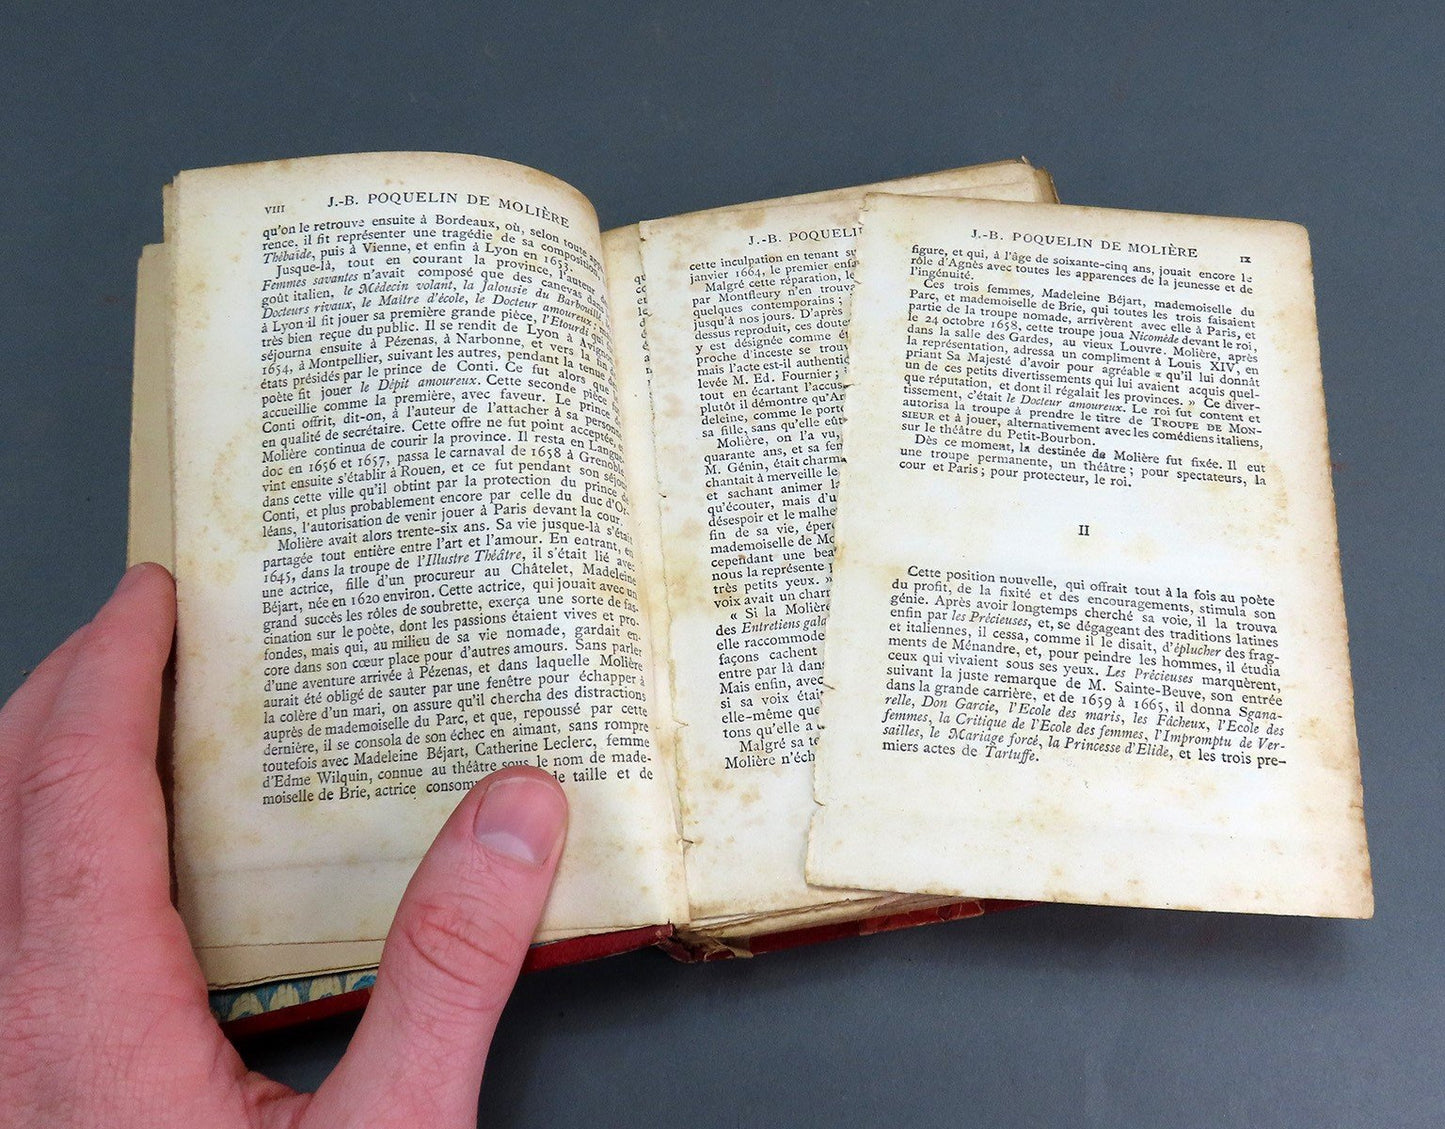 VIII J.-B. POQUELIN DE MOLIÈRE
qu'on le retrouve ensuite à Bordeaux, où, selon toute
rence, il fit représenter une tragédie de sa composition,
Thébaïde, puis à Vienne, et enfin à Lyon en 1653.
Jusque-là, tout en courant la province, l'auteur de
Femmes savantes n'avait composé que des canevas dans
goût italien, le Médecin volant, la Jalousie du Barbouillé,
Docteurs rivaux, le Maître d'école, le Docteur amoureux;
à Lyon il fit jouer sa première grande pièce, l'Etourdi, qui
très bien reçue du public. Il se rendit de Lyon à Avignon,
séjourna ensuite à Pézenas, à Narbonne, et vers la fin de
1654, à Montpellier, suivant les autres, pendant la tenue des
états présidés par le prince de Conti. Ce fut alors que le
poète fit jouer le Dépit amoureux. Cette seconde pièce fut
accueillie comme la première, avec faveur. Le prince de
Conti offrit, dit-on, à l'auteur de l'attacher à sa personne
en qualité de secrétaire. Cette offre ne fut point acceptée, et
Molière continua de courir la province. Il resta en Langue-
doc en 1656 et 1657, passa le carnaval de 1658 à Grenoble,
vint ensuite s'établir à Rouen, et ce fut pendant son séjour
dans cette ville qu'il obtint par la protection du prince de
Conti, et plus probablement encore par celle du duc d'Or-
léans, l'autorisation de venir jouer à Paris devant la cour.
Molière avait alors trente-six ans. Sa vie jusque-là s'était
partagée tout entière entre l'art et l'amour. En entrant, en
1645, dans la troupe de l'Illustre Théâtre, il s'était lié avec
une actrice, fille d'un procureur au Châtelet, Madeleine
Béjart, née en 1620 environ. Cette actrice, qui jouait avec un
grand succès les rôles de soubrette, exerça une sorte de fas-
cination sur le poète, dont les passions étaient vives et pro-
fondes, mais qui, au milieu de sa vie nomade, gardait en-
core dans son cœur place pour d'autres amours. Sans parler
d'une aventure arrivée à Pézenas, et dans laquelle Molière
aurait été obligé de sauter par une fenêtre pour échapper à
la colère d'un mari, on assure qu'il chercha des distractions
auprès de mademoiselle du Parc, et que, repoussé par cette
dernière, il se consola de son échec en aimant, sans rompre
toutefois avec Madeleine Béjart, Catherine Leclerc, femme
d'Edme Wilquin, connue au théâtre sous le nom de made-
moiselle de Brie, actrice de taille et de
J.-B. POQUEL
cette inculpation en tenant
janvier 1664, le premier
Malgré cette réparation,
par Montfleury n'en
quelques contemporains;
jusqu'à nos jours. D'après
dessus reproduit, ces
y est désignée comme
proche d'inceste se
mais l'acte est-il
levée M. Ed. Fournier;
tout en écartant
plutôt il démontre
deleine, comme le
sa fille, sans qu'elle
Molière, on l'a vu,
quarante ans, et sa
M. Génin, était
chantait à merveille le
et sachant animer la
qu'écouter, mais
désespoir et le
fin de sa vie,
mademoiselle de
cependant une
nous la représente
très petits yeux. »
voix avait un
« Si la Molière
des Entretiens
elle raccommode
façons cachent
entre par là dans
Mais enfin, avec
si sa voix était
elle-même que
tons qu'elle a
Malgré sa
Molière
J.-B. POQUELIN DE MOLIÈRE IX
figure, et qui, à l'âge de soixante-cinq ans, jouait encore le
rôle d'Agnès avec toutes les apparences de la jeunesse et de
l'ingénuité.
Ces trois femmes, Madeleine Béjart, mademoiselle du
Parc, et mademoiselle de Brie, qui toutes les trois faisaient
partie de la troupe nomade, arrivèrent avec elle à Paris, et
le 24 octobre 1658, cette troupe joua Nicomède devant le roi,
dans la salle des Gardes, au vieux Louvre. Molière, après
la représentation, adressa un compliment à Louis XIV, en
priant Sa Majesté d'avoir pour agréable « qu'il lui donnât
un de ces petits divertissements qui lui avaient acquis quel-
que réputation, et dont il régalait les provinces. » Ce diver-
tissement, c'était le Docteur amoureux. Le roi fut content et
autorisa la troupe à prendre le titre de TROUPE DE MON-
SIEUR et à jouer, alternativement avec les comédiens italiens,
sur le théâtre du Petit-Bourbon.
Dès ce moment, la destinée de Molière fut fixée. Il eut
une troupe permanente, un théâtre; pour spectateurs, la
cour et Paris; pour protecteur, le roi.
II
Cette position nouvelle, qui offrait tout à la fois au poète
du profit, de la fixité et des encouragements, stimula son
génie. Après avoir longtemps cherché sa voie, il la trouva
enfin par les Précieuses, et, se dégageant des traditions latines
et italiennes, il cessa, comme il le disait, d'éplucher des frag-
ments de Ménandre, et, pour peindre les hommes, il étudia
ceux qui vivaient sous ses yeux. Les Précieuses marquèrent,
suivant la juste remarque de M. Sainte-Beuve, son entrée
dans la grande carrière, et de 1659 à 1665, il donna Sgana-
relle, Don Garcie, l'Ecole des maris, les Fâcheux, l'Ecole des
femmes, la Critique de l'Ecole des femmes, l'Impromptu de Ver-
sailles, le Mariage forcé, la Princesse d'Elide, et les trois pre-
miers actes de Tartuffe.